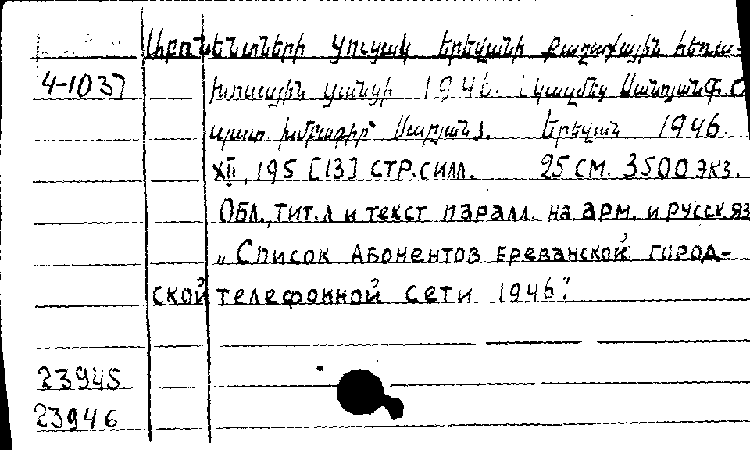 Աբոնենտների ցուցակ Երեվանի քաղաքային հեռա-
4-1037 խոսային ցանցի 1946. Կազմեց
պատ. խմբագիր Երեվան 1946.
XII, 195 [13] СТР. СИЛЛ. 25 СМ. 3500 ЭКЗ.
Обл., тит. л и текст паралл. на арм. и русск яз
„Список Абонентов Ереванской город-
ской телефонной сети 1946".
23945
23946